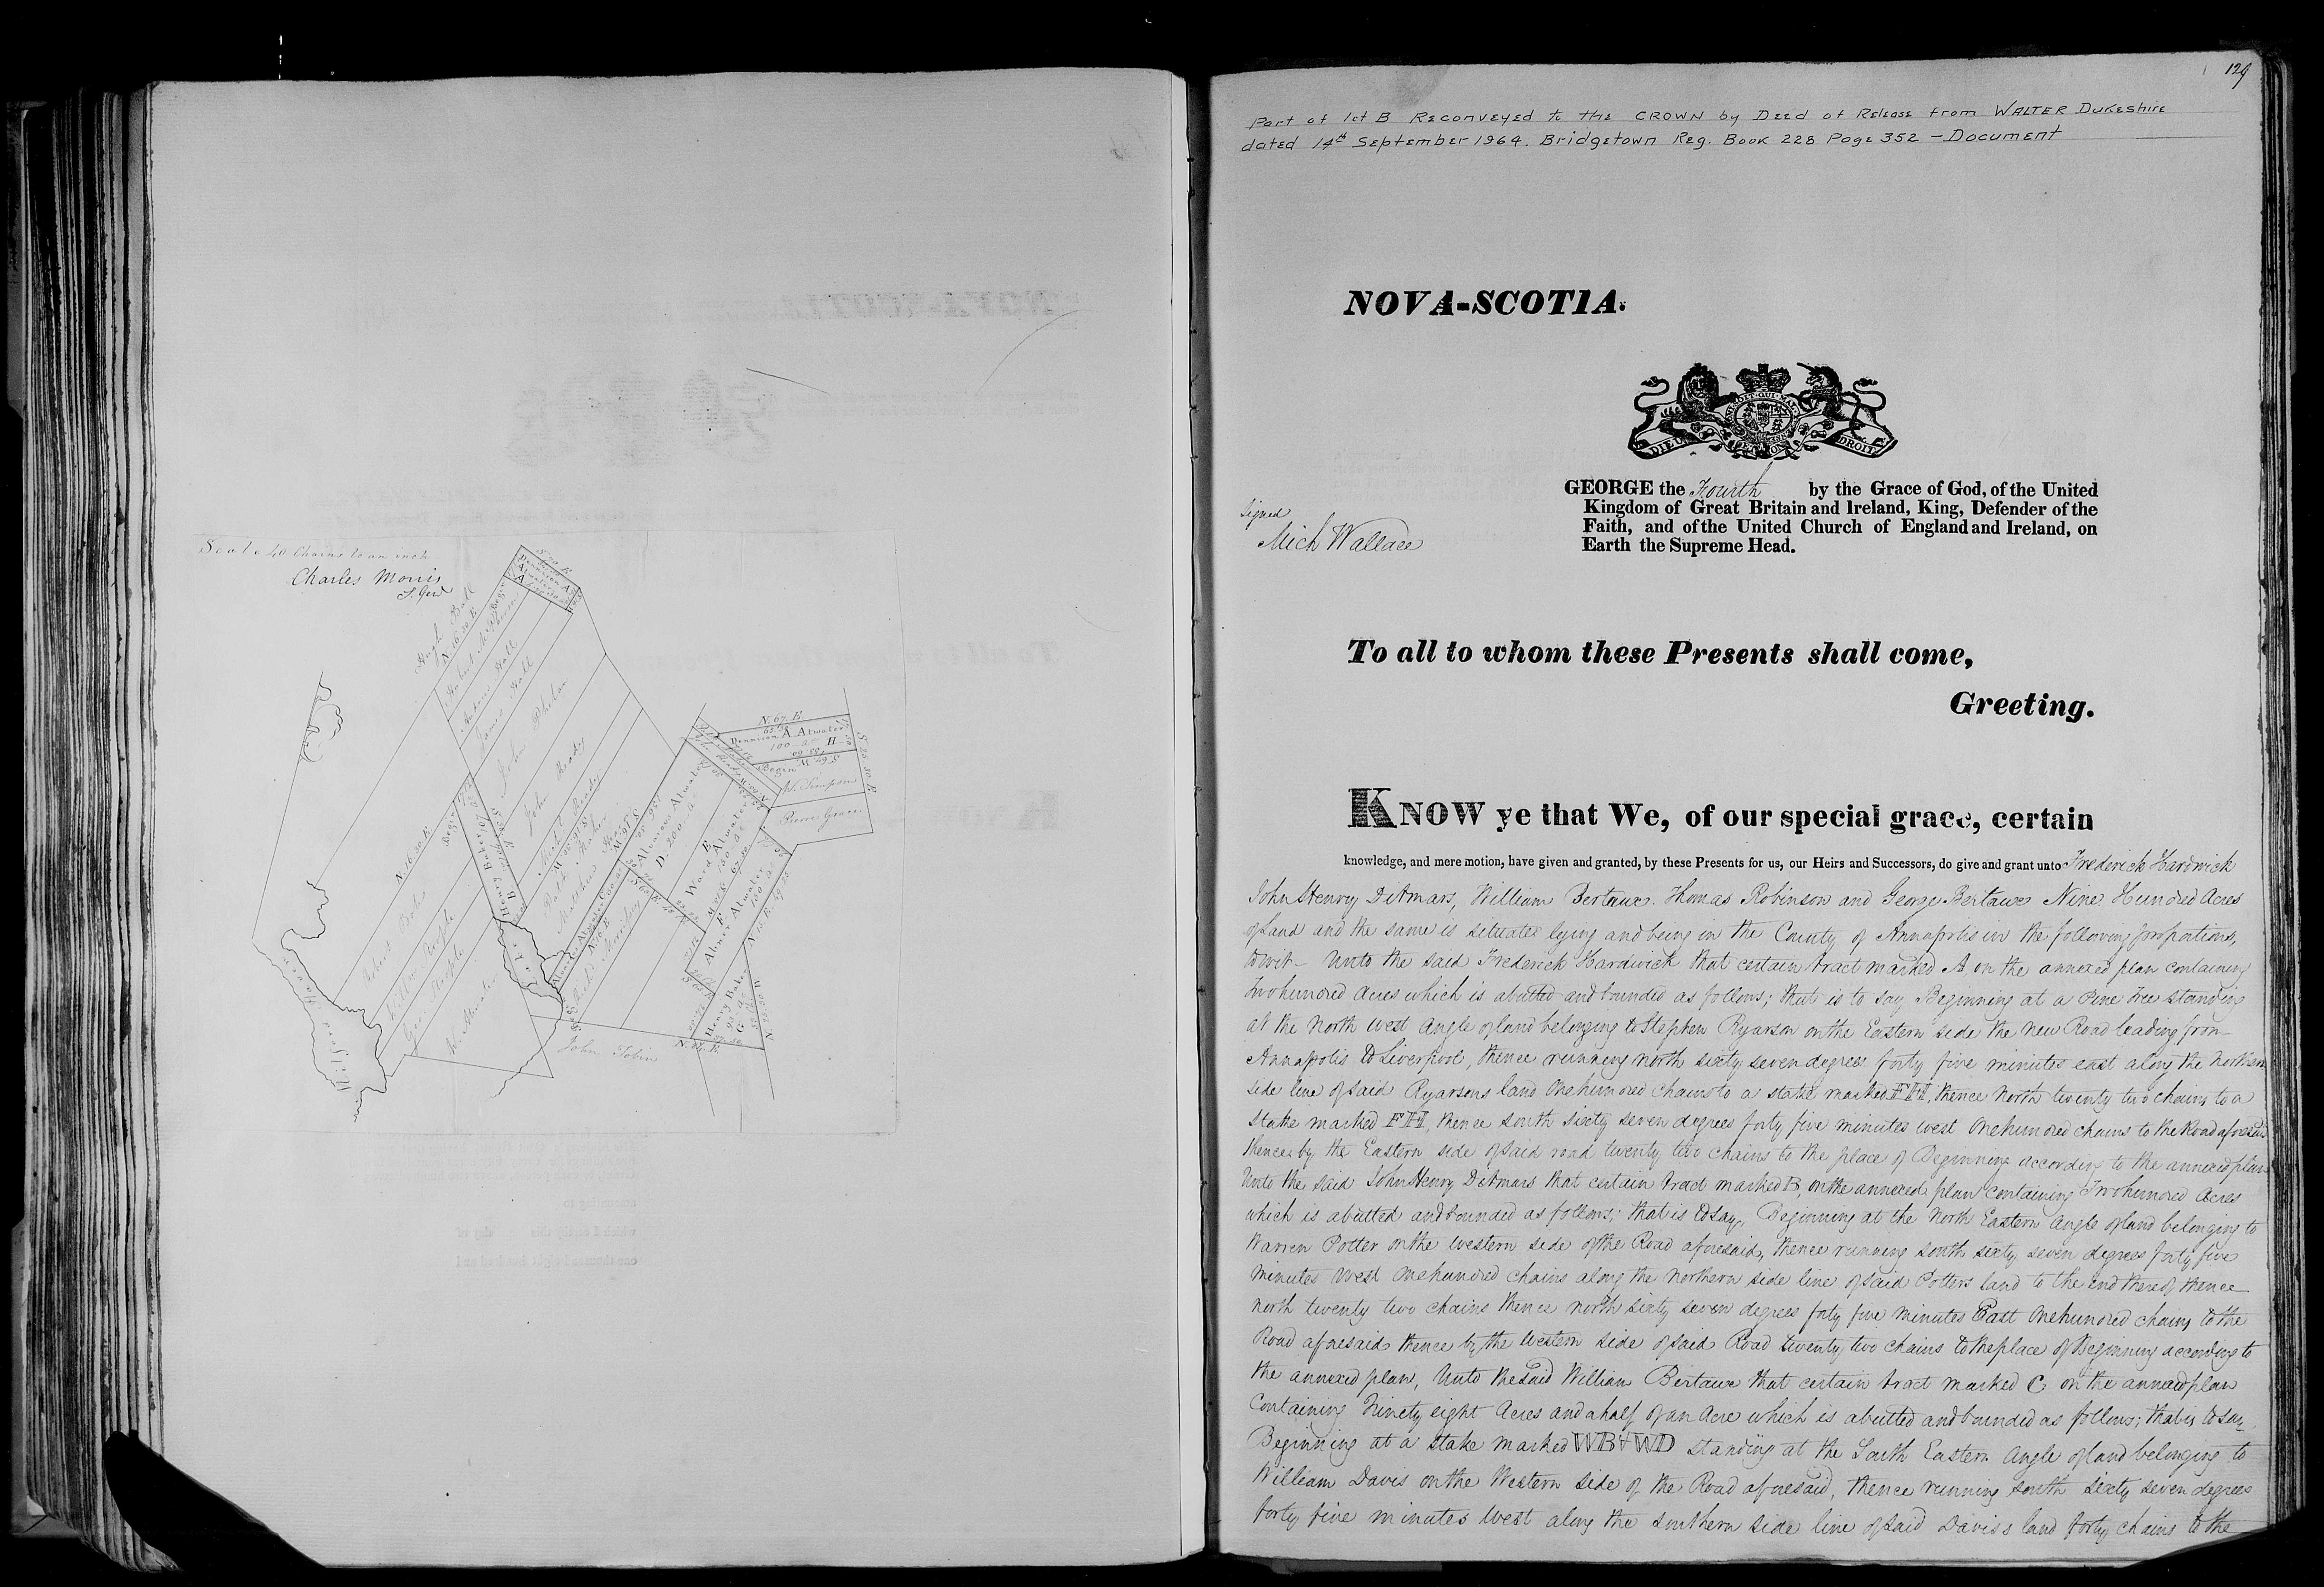 Scale 40 Chains to an inch
Charles Morris
S. Genl
Hugh Bell
N. 16. 30 E
S. 70 E
Andrew Hall
James Hall
John Phelan
John Ready
N. 16. 30 E
Begin
Henry Baker
B
Robert Bowes
W. Hunter
John Tobin
Almeron Atwater
D. 200 a.
E
Ward Atwater
150 ac
Abner F. Atwater
150 a.
Henry Baker
G
N. 67. E
N. 67. E
Dennison A. Atwater
100 ac H
Begin
W. Simpson
Pierce Grace
129
Part of lot B Reconveyed to the CROWN by Deed of Release from WALTER Dukeshire
dated 14th September 1964. Bridgetown Reg. Book 228 Page 352 – Document
NOVA-SCOTIA.
DIEU ET MON DROIT
Signed
Mich Wallace
GEORGE the Fourth by the Grace of God, of the United
Kingdom of Great Britain and Ireland, King, Defender of the
Faith, and of the United Church of England and Ireland, on
Earth the Supreme Head.
To all to whom these Presents shall come,
Greeting.
KNOW ye that We, of our special grace, certain
knowledge, and mere motion, have given and granted, by these Presents for us, our Heirs and Successors, do give and grant unto Frederick Hardwick
John Henry Ditmars, William Bertaux, Thomas Robinson and George Bertaux Nine Hundred Acres
of Land and the same is situate lying and being in the County of Annapolis in the following proportions,
to wit – Unto the said Frederick Hardwick that certain tract marked A on the annexed plan containing
two hundred Acres which is abutted and bounded as follows; that is to say Beginning at a Pine Tree standing
at the North West Angle of land belonging to Stephen Ryarson on the Eastern side the new Road leading from
Annapolis to Liverpool, thence running north sixty seven degrees forty five minutes east along the northern
side line of said Ryarsons land One hundred Chains to a stake marked FH, thence North twenty two chains to a
Stake marked FH, thence south sixty seven degrees forty five minutes west One hundred chains to the Road aforesaid
thence by the Eastern side of said road twenty two chains to the place of Beginning according to the annexed plan
Unto the said John Henry Ditmars that certain tract marked B, on the annexed plan containing Two hundred Acres
which is abutted and bounded as follows; that is to say, Beginning at the North Eastern Angle of land belonging to
Warren Potter on the western side of the Road aforesaid, thence running south sixty seven degrees forty five
minutes West One hundred chains along the northern side line of said Potters land to the end thereof, thence
north twenty two chains thence north sixty seven degrees forty five minutes East One hundred chains to the
Road aforesaid thence by the western side of said Road twenty two chains to the place of Beginning according to
the annexed plan, Unto the said William Bertaux that certain tract marked C on the annexed plan
Containing Ninety eight Acres and a half of an Acre which is abutted and bounded as follows; that is to say
Beginning at a stake marked WB+WD standing at the South Eastern Angle of land belonging to
William Davis on the Western side of the Road aforesaid, thence running south sixty seven degrees
forty five minutes West along the southern side line of said Davis's land forty chains to the